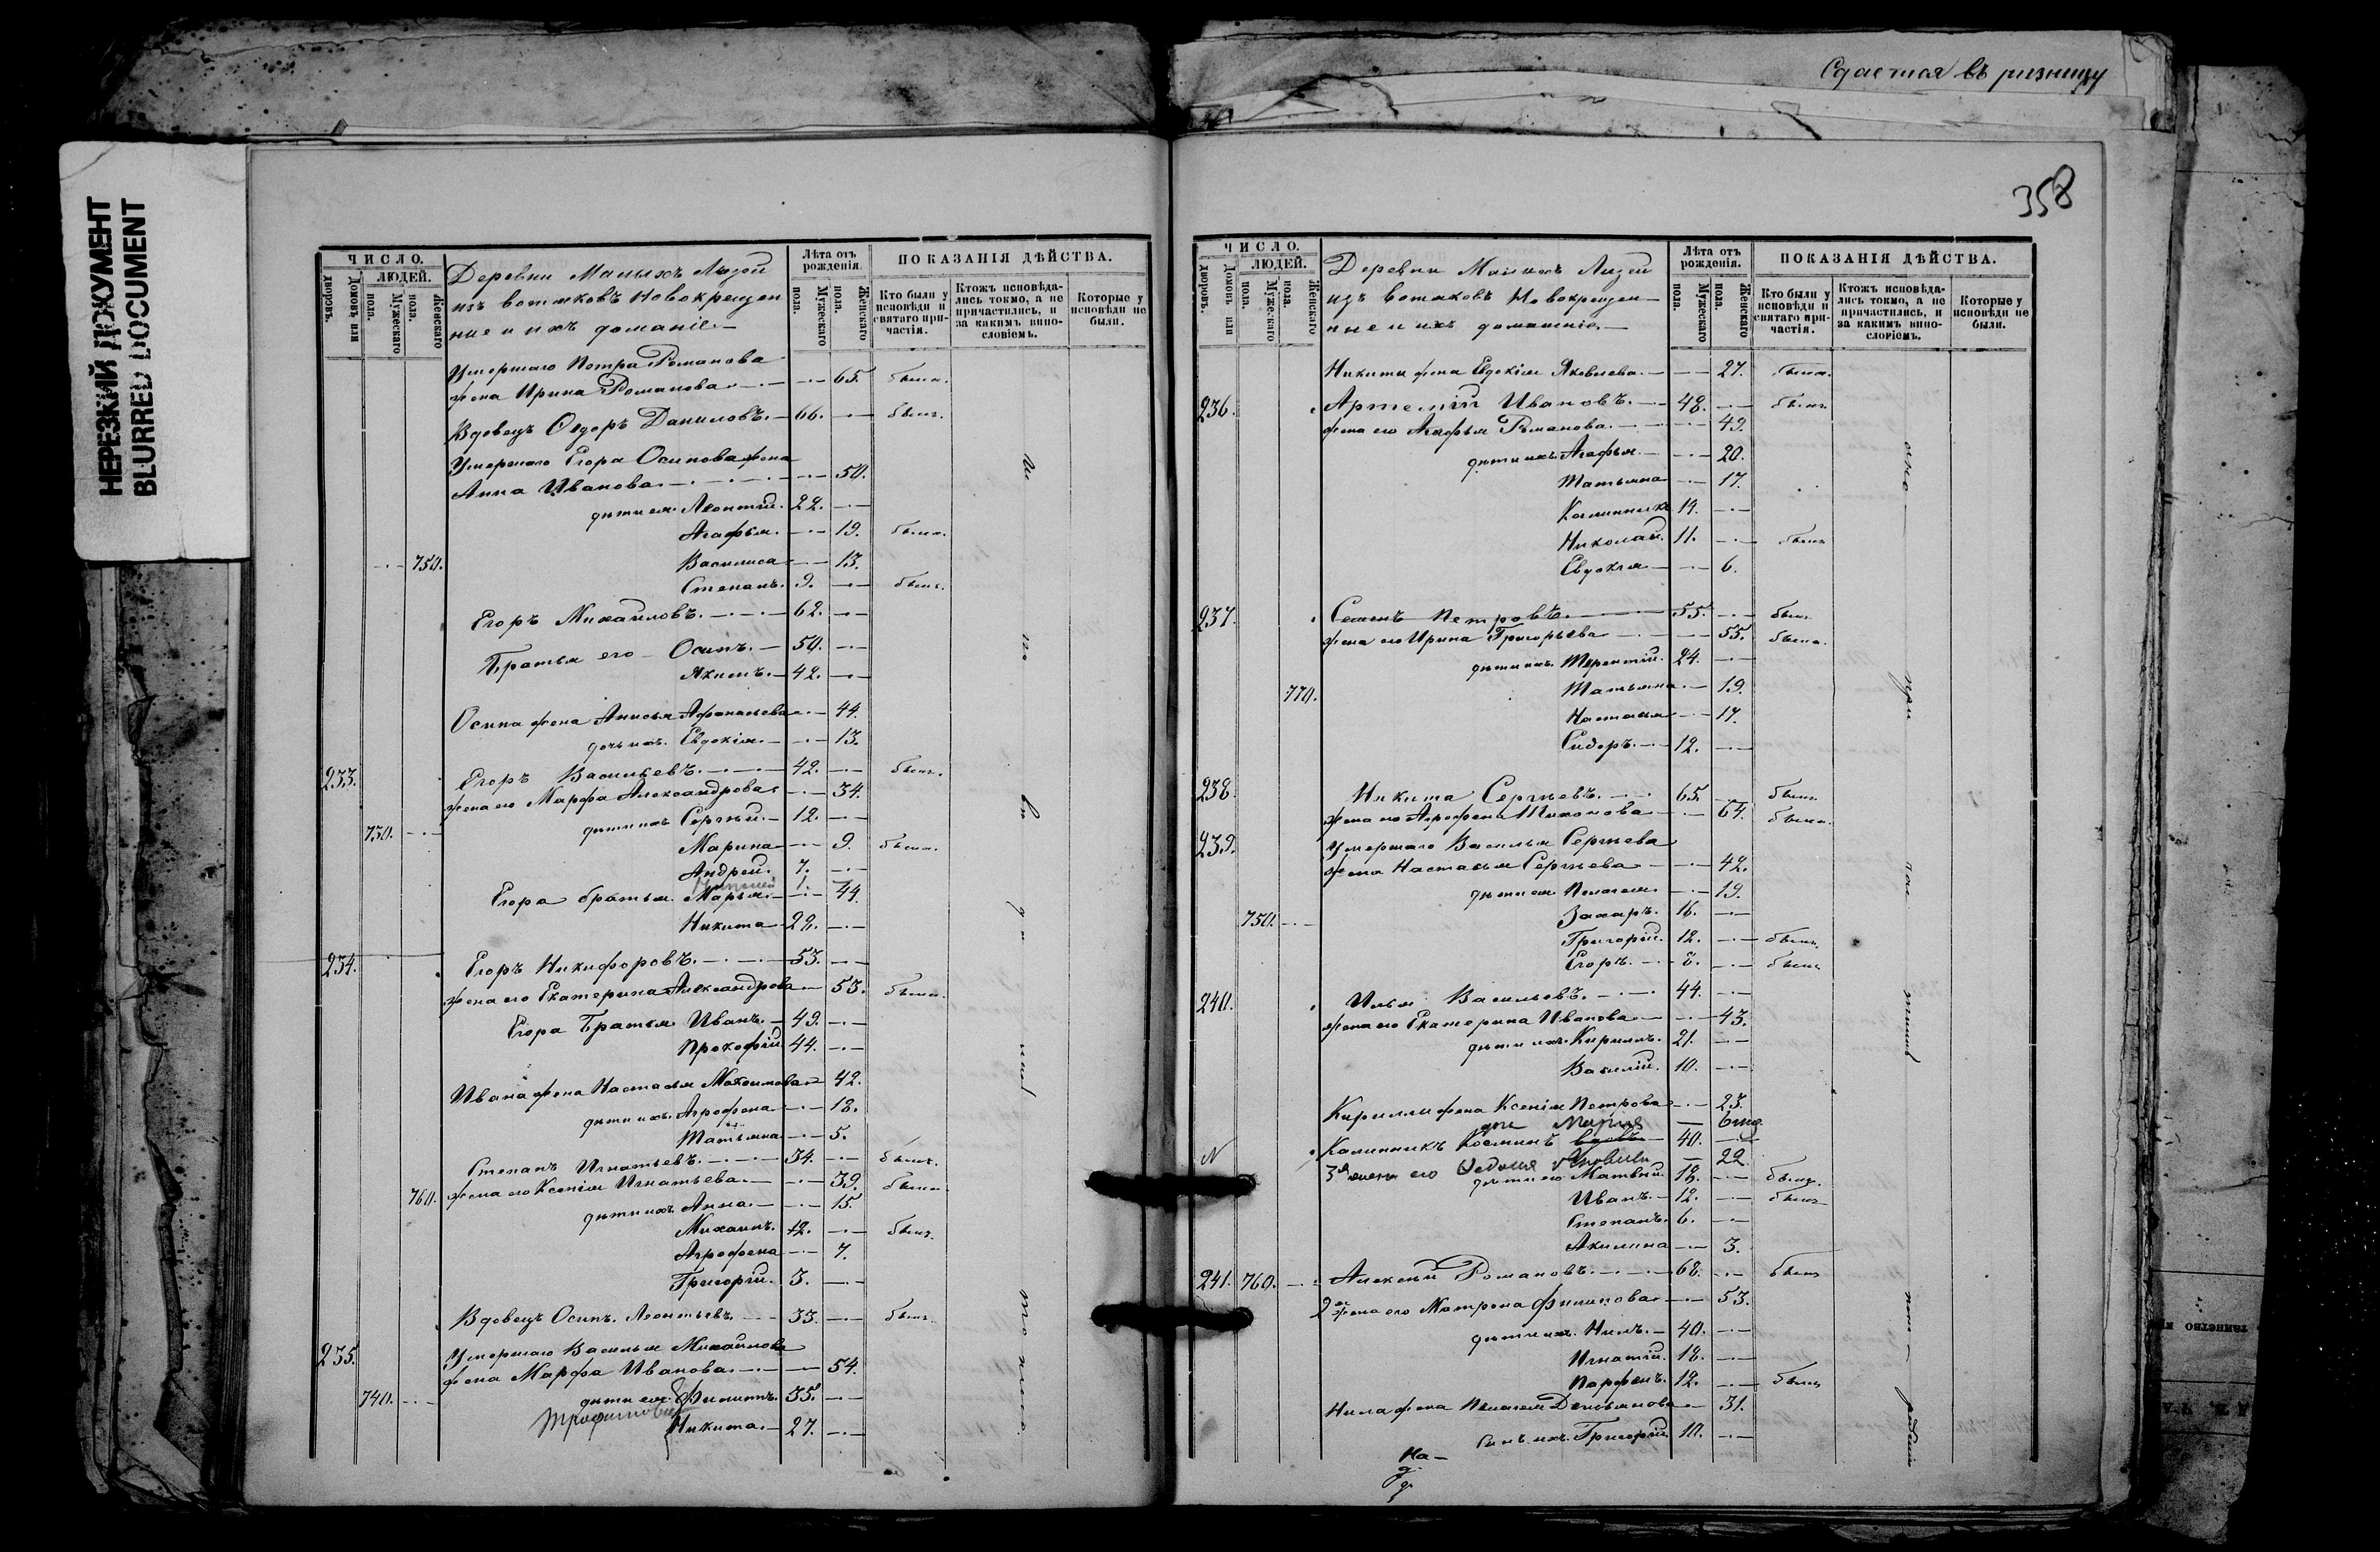 НЕРЕЗКИЙ ДОКУМЕНТ
BLURRED DOCUMENT
ЧИСЛО.
ЛЮДЕЙ.
Дворовъ.
Домовъ или
Мужескаго пола.
Женскаго пола.
Деревни Малыхъ Лызей
изъ вотяковъ Новокрещен
ные и ихъ домашніе
Лѣта отъ рожденія.
Мужескаго пола.
Женскаго пола.
ПОКАЗАНІЯ ДѢЙСТВА.
Кто были у исповѣди и святаго причастія.
Ктожъ исповѣдались токмо, а не причастились, и за какимъ винословіемъ.
Которые у исповѣди не были.
Умершаго Петра Романова
жена Ирина Романова 65. была.
Вдовецъ Ѳедоръ Даниловъ. 66. былъ.
Умершаго Егора Осипова жена
Анна Иванова 50.
дѣти ея Леонтій. 22.
Агафья. 19. была.
750. Василиса 13.
Степанъ. 9. былъ.
Егоръ Михайловъ. 62.
Братья его Осипъ. 50.
Якимъ. 42.
Осипа жена Анисья Афонасьева 44.
дочь ихъ Евдокія. 13.
233. Егоръ Васильевъ. 42. былъ.
жена его Марфа Александрова 34.
730. дѣти ихъ Сергѣй. 12.
Марина 9. была.
Андрей. 7.
1.
Егора братья Марья 44.
Никита 28.
234. Егоръ Никифоровъ. 53.
жена его Екатерина Александрова 53. была.
Егора Братья Иванъ. 49.
Прокофій 44.
Ивана жена Настасья Максимова 42.
дѣти ихъ Агрофена 18.
Татьяна 5.
Степанъ Игнатьевъ. 34. былъ.
760. жена его Ксенія Игнатьева 39. была.
дѣти ихъ Анна. 15.
Михаилъ. 12. былъ.
Агрофена 7.
Григорій. 3.
Вдовецъ Осипъ Леонтьевъ. 33. былъ.
235. Умершаго Василья Михайлова
жена Марфа Иванова 54.
740. дѣти ея Филипъ. 35.
Никита 27.
Сдается въ ризницу
358
ЧИСЛО.
ЛЮДЕЙ.
Дворовъ.
Домовъ или
Мужескаго пола.
Женскаго пола.
Деревни Малыхъ Лызей
изъ вотяковъ Новокрещен
ные и ихъ домашніе
Лѣта отъ рожденія.
Мужескаго пола.
Женскаго пола.
ПОКАЗАНІЯ ДѢЙСТВА.
Кто были у исповѣди и святаго причастія.
Ктожъ исповѣдались токмо, а не причастились, и за какимъ винословіемъ.
Которые у исповѣди не были.
Никиты жена Евдокія Яковлева 27. была.
236. Артемій Ивановъ. 48. былъ
жена его Агафья Романова 49.
дѣти ихъ Агафья. 20.
Татьяна 17.
Калинникъ 19.
Николай. 11. былъ
Евдокія 6.
237. Семенъ Петровъ. 55. былъ
жена его Ирина Григорьева 55. была.
дѣти ихъ Терентій. 24.
770. Татьяна 19.
Настасья 17.
Сидоръ. 12.
238. Никита Сергѣевъ. 65. былъ
жена его Агрофена Тихонова 64. была.
239. Умершаго Василья Сергѣева
жена Настасья Сергѣева 42.
дѣти ея Пелагея 19.
750. Захаръ. 16.
Григорій. 12. былъ.
Егоръ. 8. былъ
240. Илья Васильевъ. 44.
жена его Екатерина Иванова 43.
дѣти ихъ Кирилъ. 21.
Василій. 10.
Кирилла жена Ксенія Петрова 23.
дочь Марія
Калинникъ Косминъ вдовъ 40.
3я жена его Ѳедосія 22
дѣти его Матвѣй 18. былъ.
Иванъ. 12. былъ
Степанъ. 6.
Акилина 3.
241. 760. Алексѣй Романовъ. 68. былъ
2я жена его Матрона Филипова 53.
дѣти ихъ Нилъ. 40.
Игнатій. 18.
Парфенъ. 12. былъ
Нила жена Пелагея Демьянова 31.
сынъ ихъ Григорій 10.
На